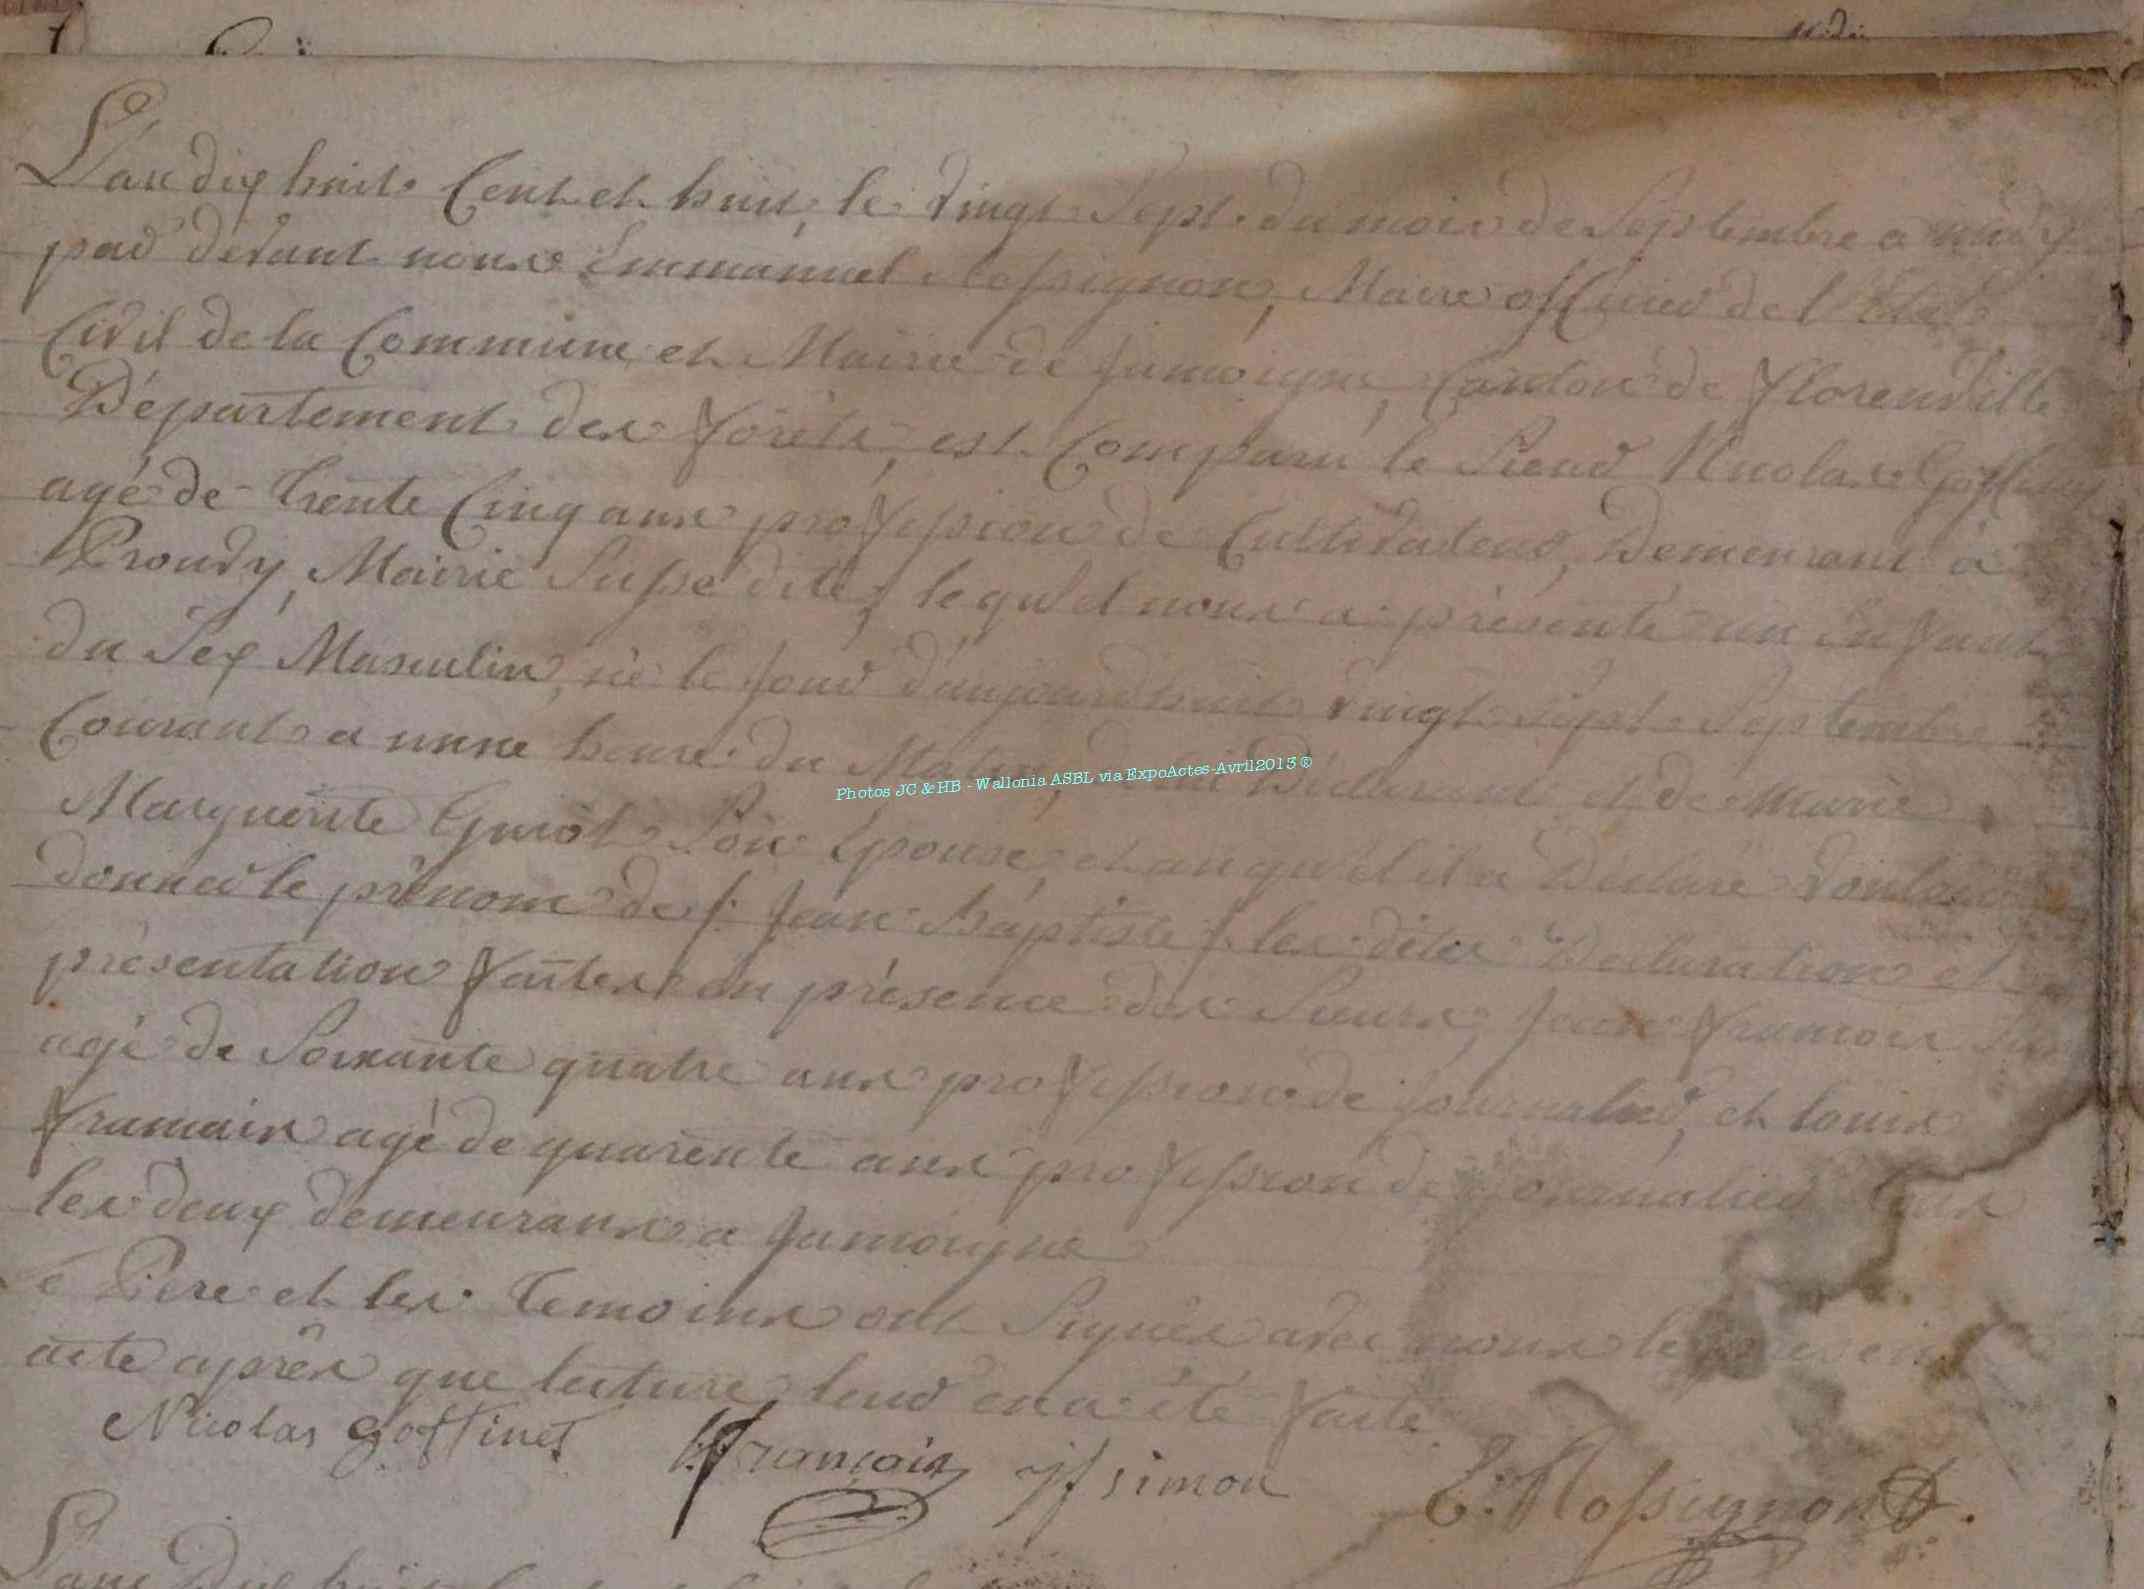 L'an dix huit Cent et huit, le vingt Sept du mois de Septembre a midy
par devant nous Emmanuel Rossignon, Maire officier de l'Etat
Civil de la Commune et Mairie de Jamoigne, Canton de Florenville
Département des forêts, est Comparu le Sieur Nicolas Goffinet
agé de trente Cinq ans profession de Cultivateur, Demeurant à
Prouvy, Mairie Susse dite, lequel nous a présenté un Enfant
du Sex Masculin, né le jour d'aujourdhuit vingt sept Septembre
Courant a unne heure du Matin, de lui Déclarant et de Marie
Photos JC & HB - Wallonia ASBL via ExpoActes-Avril2013 ®
Marguerite Guiot Son Epouse, et auquel il a Déclaré vouloir
donner le prénom de /: Jean Baptiste /: les dites Déclaration et
présentation faites en présence des Sieurs, Jean François
agé de Soixante quatre ans profession de journalier, et louis
framçais agé de quarente ans profession de journalier tous
les deux demeurans a Jamoigne
Le Pere et les temoins ont Signés avec nous le présent
acte après que lecture leur en a été faite
Nicolas goffinet françois jf simon E. Rossignon